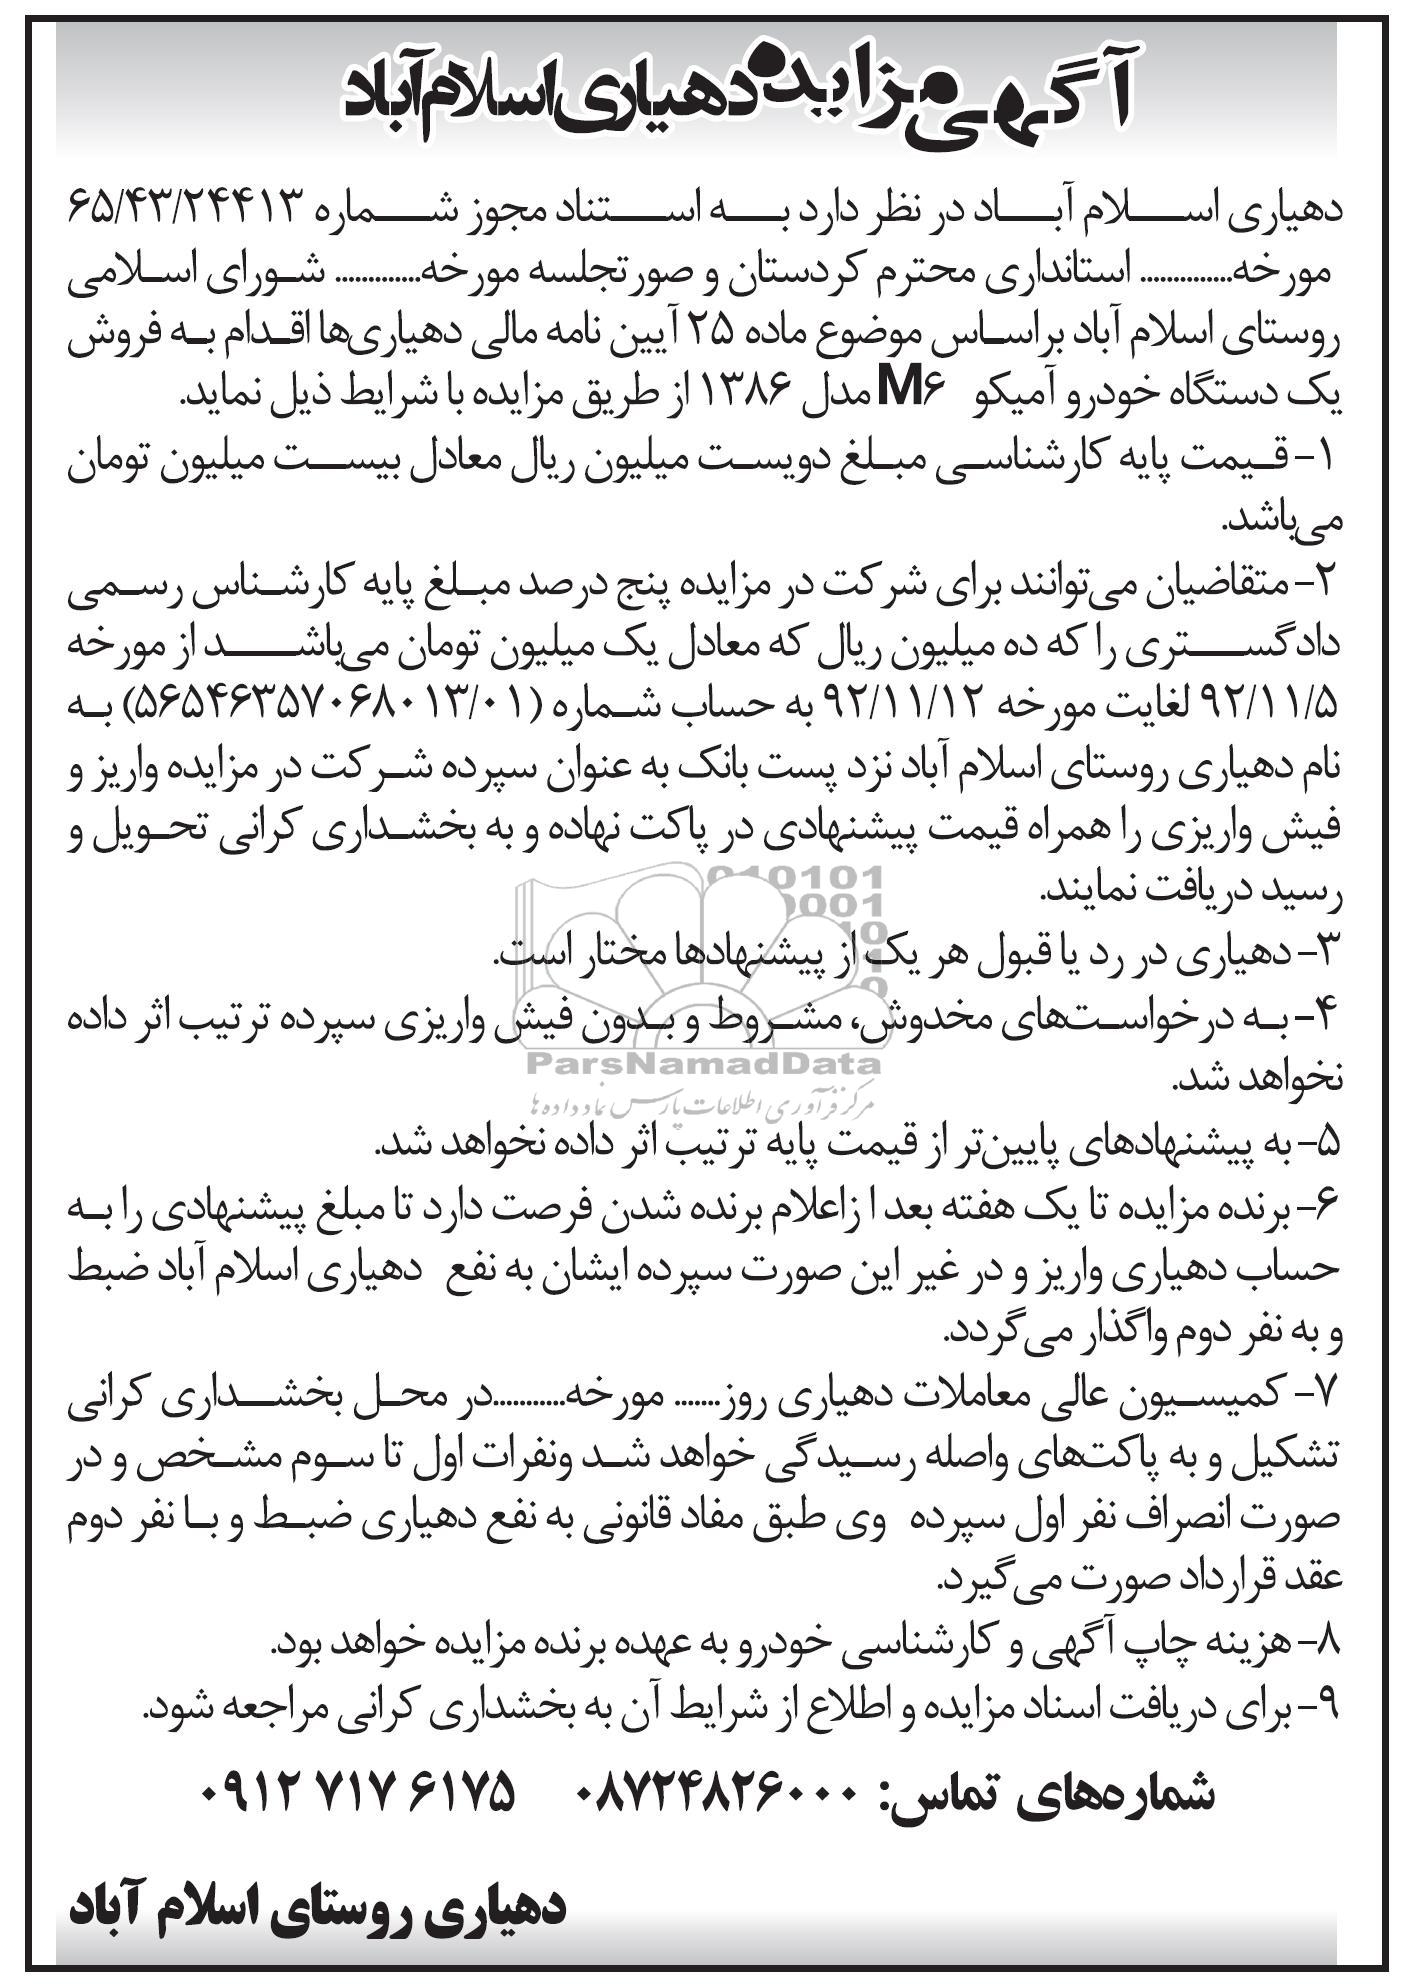 آگهی مزایده دهیاری اسلام‌آباد
دهیاری اسلام آباد در نظر دارد به استناد مجوز شماره ۶۵/۴۳/۲۴۴۱۳
مورخه............. استانداری محترم کردستان و صورتجلسه مورخه............ شورای اسلامی
روستای اسلام آباد براساس موضوع ماده ۲۵ آیین نامه مالی دهیاری‌ها اقدام به فروش
یک دستگاه خودرو آمیکو M۶ مدل ۱۳۸۶ از طریق مزایده با شرایط ذیل نماید.
۱- قیمت پایه کارشناسی مبلغ دویست میلیون ریال معادل بیست میلیون تومان
می‌باشد.
۲- متقاضیان می‌توانند برای شرکت در مزایده پنج درصد مبلغ پایه کارشناس رسمی
دادگستری را که ده میلیون ریال که معادل یک میلیون تومان می‌باشد از مورخه
۹۲/۱۱/۵ لغایت مورخه ۹۲/۱۱/۱۲ به حساب شماره (۵۶۵۴۶۳۵۷۰۶۸۰۱۳/۰۱) به
نام دهیاری روستای اسلام آباد نزد پست بانک به عنوان سپرده شرکت در مزایده واریز و
فیش واریزی را همراه قیمت پیشنهادی در پاکت نهاده و به بخشداری کرانی تحویل و
رسید دریافت نمایند.
۳- دهیاری در رد یا قبول هر یک از پیشنهادها مختار است.
۴- به درخواست‌های مخدوش، مشروط و بدون فیش واریزی سپرده ترتیب اثر داده
نخواهد شد.
ParsNamadData
مرکز فرآوری اطلاعات پارس نماد داده ها
۵- به پیشنهادهای پایین‌تر از قیمت پایه ترتیب اثر داده نخواهد شد.
۶- برنده مزایده تا یک هفته بعد ا زاعلام برنده شدن فرصت دارد تا مبلغ پیشنهادی را به
حساب دهیاری واریز و در غیر این صورت سپرده ایشان به نفع دهیاری اسلام آباد ضبط
و به نفر دوم واگذار می‌گردد.
۷- کمیسیون عالی معاملات دهیاری روز....... مورخه...........در محل بخشداری کرانی
تشکیل و به پاکت‌های واصله رسیدگی خواهد شد ونفرات اول تا سوم مشخص و در
صورت انصراف نفر اول سپرده وی طبق مفاد قانونی به نفع دهیاری ضبط و با نفر دوم
عقد قرارداد صورت می‌گیرد.
۸- هزینه چاپ آگهی و کارشناسی خودرو به عهده برنده مزایده خواهد بود.
۹- برای دریافت اسناد مزایده و اطلاع از شرایط آن به بخشداری کرانی مراجعه شود.
شماره‌های تماس: ۰۸۷۲۴۸۲۶۰۰۰ ۰۹۱۲ ۷۱۷ ۶۱۷۵
دهیاری روستای اسلام آباد